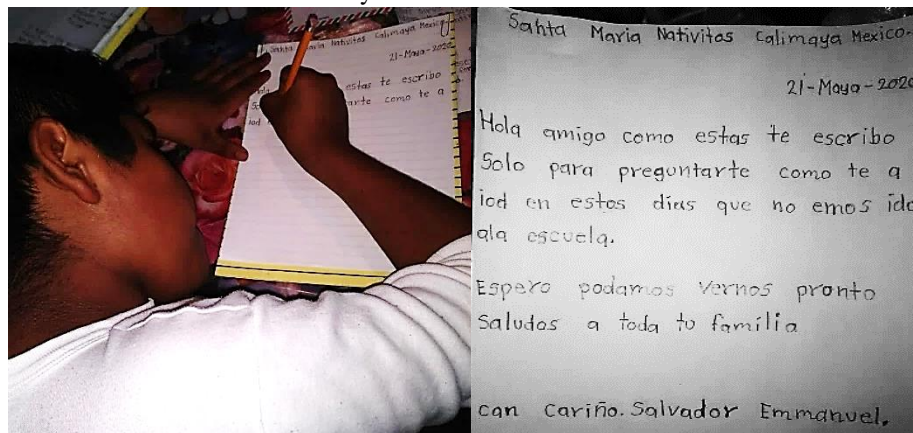 Santa Maria Nativitas Calimaya Mexico
21-Mayo-2020
estas te escribo
arte como te a
iod
Sahta Maria Nativitas Calimaya Mexico.
21-Mayo-2020
Hola amigo como estas te escribo
Solo para preguntarte como te a
iod en estos dias que no emos ido
ala escuela.
Espero podamos vernos pronto
Saludos a toda tu familia
can Cariño. Salvador Emmanuel.